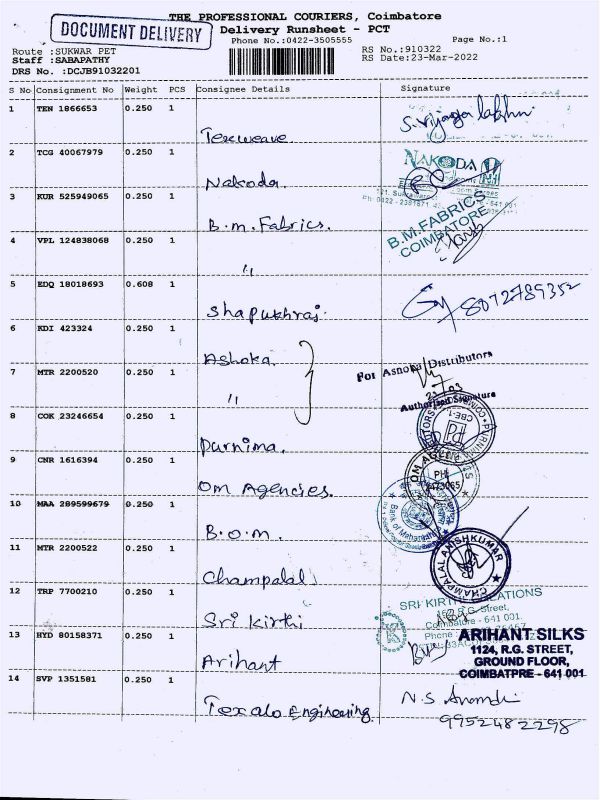 THE PROFESSIONAL COURIERS, Coimbatore
DOCUMENT DELIVERY
Delivery Runsheet - PCT
Phone No.:0422-3505555
Page No.:1
Route :SUKWAR PET
RS No.:910322
Staff :SABAPATHY
RS Date:23-Mar-2022
DRS No. :DCJB91032201
S No Consignment No Weight PCS Consignee Details Signature
1 TEN 1866653 0.250 1
Texweave S. Vijaya lakshmi
2 TCG 40067979 0.250 1
Nakoda. NAKODA
3 KUR 525949065 0.250 1
B.m. Fabrics. B.M.FABRICS
COIMBATORE
4 VPL 124838068 0.250 1
"
5 EDQ 18018693 0.608 1
Shapukhraj. 8072789352
6 KDI 423324 0.250 1
Ashoka. For Ashoka Distributors
7 MTR 2200520 0.250 1
" Authorised Signature
8 COK 23246654 0.250 1
Purnima. PURNIMA
CBE-1
9 CNR 1616394 0.250 1
Om Agencies. OM AGENCIES
10 MAA 289599679 0.250 1
B.O.M. Bank of Maharashtra
11 MTR 2200522 0.250 1
Champalal CHAMPALAL ANISHKUMAR
12 TRP 7700210 0.250 1
Sri Kirthi SRI KIRTHI
R.G. Street,
Coimbatore - 641 001.
13 HYD 80158371 0.250 1
Arihant ARIHANT SILKS
1124, R.G. STREET,
GROUND FLOOR,
COIMBATPRE - 641 001
14 SVP 1351581 0.250 1
Texalo Engineering N.S Anandhi
9952482298